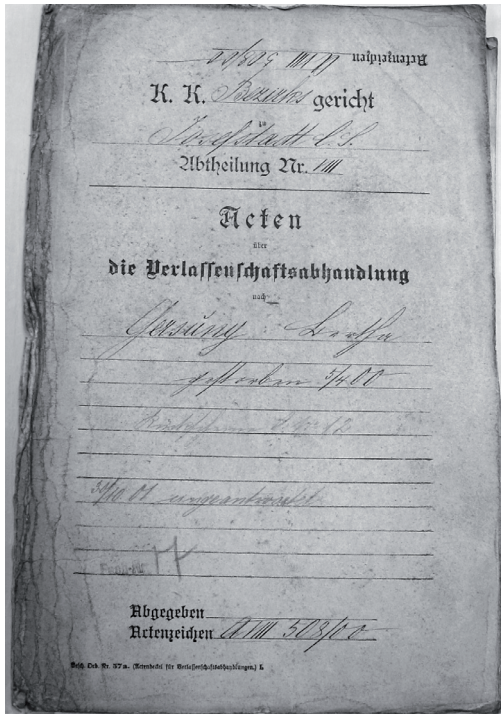 Actenzeichen A VIII 508/00
K. K. Bezirks gericht
in
Josefstadt C. S.
Abtheilung Nr. VIII
Acten
über
die Verlassenschaftsabhandlung
nach
Gersuny Bertha
gestorben 5/4 00
31/10 01 eingeantwortet
17
Abgegeben
Actenzeichen A VIII 508/00
Gesch. Ord. Nr. 37a. (Actendeckel für Verlassenschaftsabhandlungen.) L